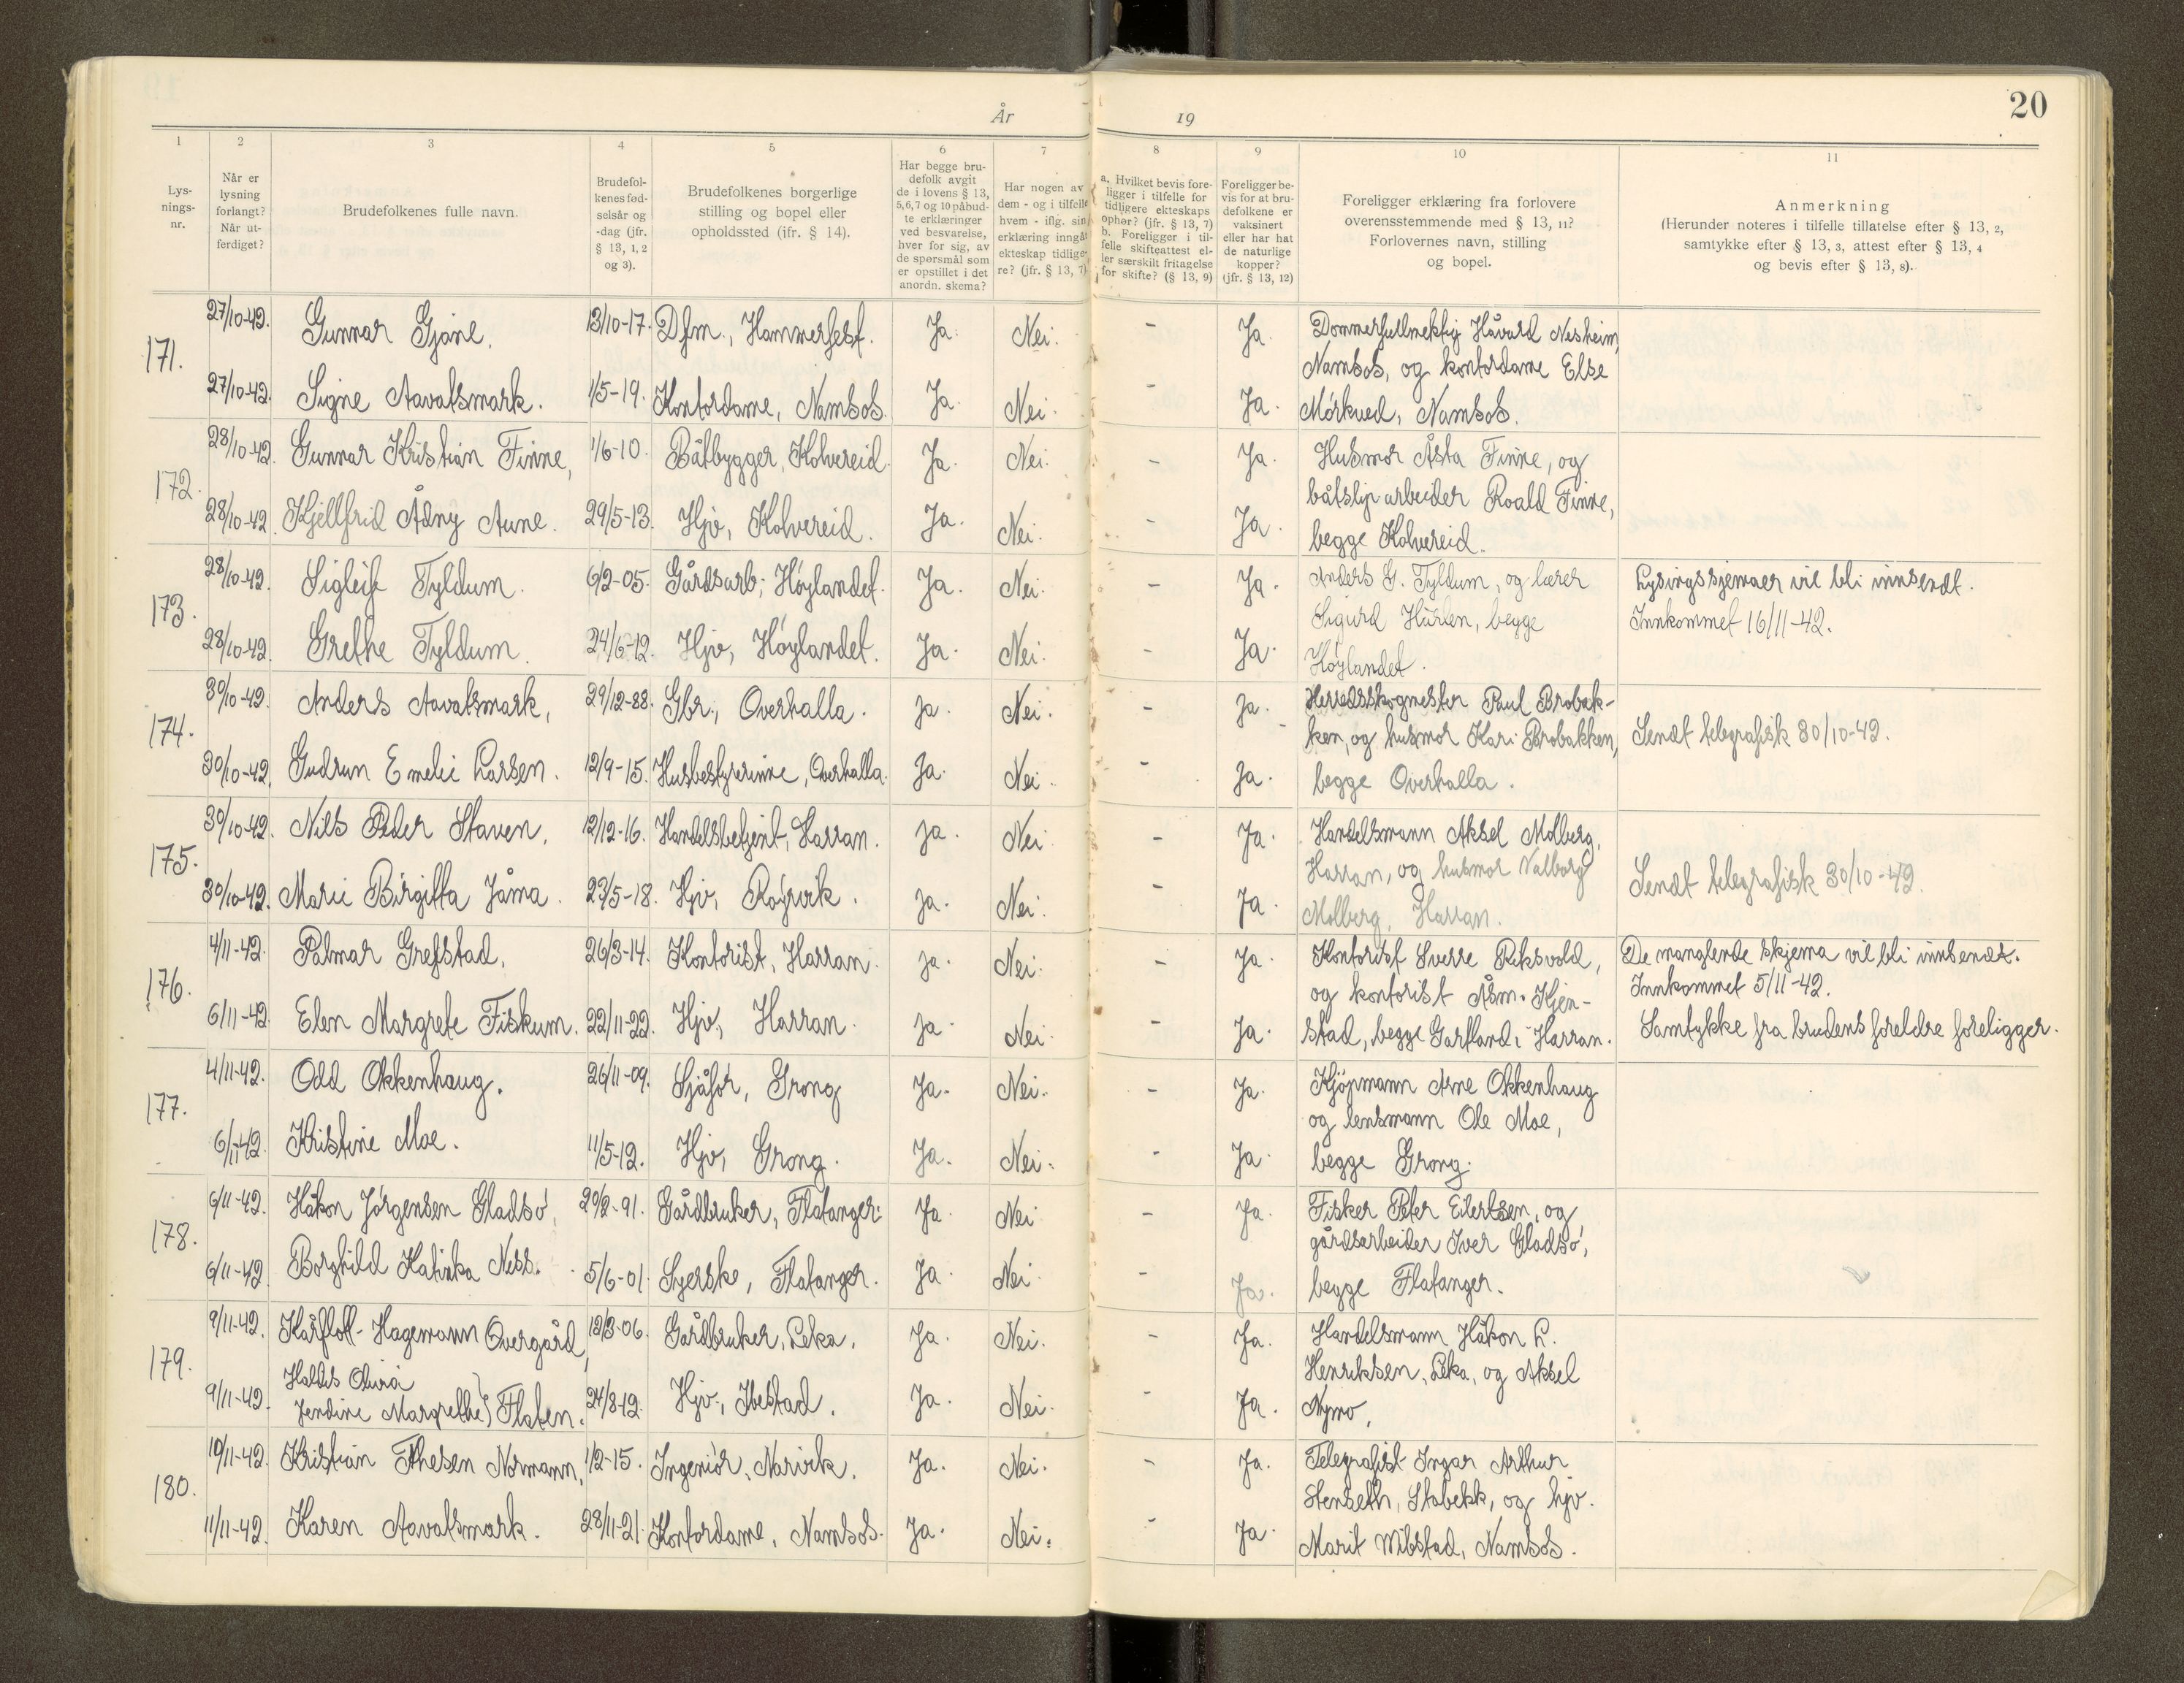 År 19
20
1 2 3 4 5 6 7 8 9 10 11
Lys-
nings-
nr.
Når er
lysning
forlangt?
Når ut-
ferdiget?
Brudefolkenes fulle navn.
Brudefol-
kenes fød-
selsår og
-dag (jfr.
§ 13, 1, 2
og 3).
Brudefolkenes borgerlige
stilling og bopel eller
opholdssted (jfr. § 14).
Har begge bru-
defolk avgit
de i lovens § 13,
5,6,7 og 10 påbud-
te erklæringer
ved besvarelse,
hver for sig, av
de spørsmål som
er opstillet i det
anordn. skema?
Har nogen av
dem - og i tilfelle
hvem - iflg. sin
erklæring inngåt
ekteskap tidlige-
re? (jfr. § 13, 7)
a. Hvilket bevis fore-
ligger i tilfelle for
tidligere ekteskaps
ophør? (jfr. § 13, 7)
b. Foreligger i til-
felle skifteattest el-
ler særskilt fritagelse
for skifte? (§ 13, 9)
Foreligger be-
vis for at bru-
defolkene er
vaksinert
eller har hat
de naturlige
kopper?
(jfr. § 13, 12)
Foreligger erklæring fra forlovere
overensstemmende med § 13, 11?
Forlovernes navn, stilling
og bopel.
Anmerkning
(Herunder noteres i tilfelle tillatelse efter § 13, 2,
samtykke efter § 13, 3, attest efter § 13, 4
og bevis efter § 13, 8).
171.
27/10-42. Gunnar Gjone. 13/10-17. Dfm., Hammerfest. Ja. Nei. - Ja.
27/10-42. Signe Aavatsmark. 1/5-19. Kontordame, Namsos. Ja. Nei. - Ja.
Dommerfullmektig Håvard Nesheim,
Namsos, og kontordame Else
Mørkved, Namsos.
172.
28/10-42. Gunnar Kristian Finne, 1/6-10. Båtbygger, Kolvereid. Ja. Nei. - Ja.
28/10-42. Kjellfrid Ådny Aune. 29/5-13. Hjv, Kolvereid. Ja. Nei. - Ja.
Husmor Åsta Finne, og
båtsliparbeider Roald Finne,
begge Kolvereid.
173.
28/10-42. Sigleif Tyldum. 6/2-05. Gårdsarb., Høylandet. Ja. Nei. - Ja.
28/10-42. Grethe Tyldum. 24/6-12. Hjv, Høylandet. Ja. Nei. - Ja.
Anders G. Tyldum, og lærer
Sigurd Hurlen, begge
Høylandet.
Lysingsskjemaer vil bli innsendt.
Innkommet 16/11-42.
174.
30/10-42. Anders Aavatsmark, 29/12-88. Gbr., Overhalla. Ja. Nei. - Ja.
30/10-42. Gudrun Emelie Larsen. 12/9-15. Husbestyrerinne, Overhalla. Ja. Nei. - Ja.
Herredsskogmester Paul Brobak-
ken, og husmor Kari Brobakken,
begge Overhalla.
Sendt telegrafisk 30/10-42.
175.
30/10-42. Nils Peder Staven. 12/12-16. Handelsbetjent, Harran. Ja. Nei. - Ja.
30/10-42. Marie Birgitta Jåma. 23/5-18. Hjv, Røyrvik. Ja. Nei. - Ja.
Handelsmann Aksel Molberg,
Harran, og husmor Valborg
Molberg, Harran.
Sendt telegrafisk 30/10-42.
176.
4/11-42. Palmar Grefstad. 26/3-14. Kontorist, Harran. Ja. Nei. - Ja.
6/11-42. Elen Margrete Fiskum. 22/11-22. Hjv, Harran. Ja. Nei. - Ja.
Kontorist Sverre Riksvold,
og kontorist Åsm. Kjen-
stad, begge Gartland i Harran.
De manglende skjema vil bli innsendt.
Innkommet 5/11-42.
Samtykke fra brudens foreldre foreligger.
177.
4/11-42. Odd Okkenhaug. 26/11-09. Sjåfør, Grong Ja. Nei. - Ja.
6/11-42. Kristine Moe. 11/5-12. Hjv, Grong. Ja. Nei. - Ja.
Kjøpmann Arne Okkenhaug
og lensmann Ole Moe,
begge Grong.
178.
6/11-42. Håkon Jørgensen Gladsø, 20/2-91. Gårdbruker, Flatanger. Ja. Nei. - Ja.
6/11-42. Borghild Katinka Ness. 5/6-01. Syerske, Flatanger. Ja. Nei. - Ja.
Fisker Peter Eilertsen, og
gårdsarbeider Iver Gladsø,
begge Flatanger.
179.
9/11-42. Kårflott Hagemann Overgård, 12/3-06. Gårdbruker, Leka. Ja. Nei. - Ja.
Haldis Olivia
9/11-42. Jendine Margrethe} Flaten. 24/8-12. Hjv., Ibestad. Ja. Nei. - Ja.
Handelsmann Håkon L.
Henriksen, Leka, og Aksel
Nymo,
180.
10/11-42. Kristian Thesen Normann, 1/2-15. Ingeniør, Narvik. Ja. Nei. - Ja.
11/11-42. Karen Aavatsmark. 28/11-21. Kontordame, Namsos. Ja. Nei. - Ja.
Telegrafist Ingar Arthur
Stenseth, Stabekk, og hjv.
Marit Wibstad, Namsos.